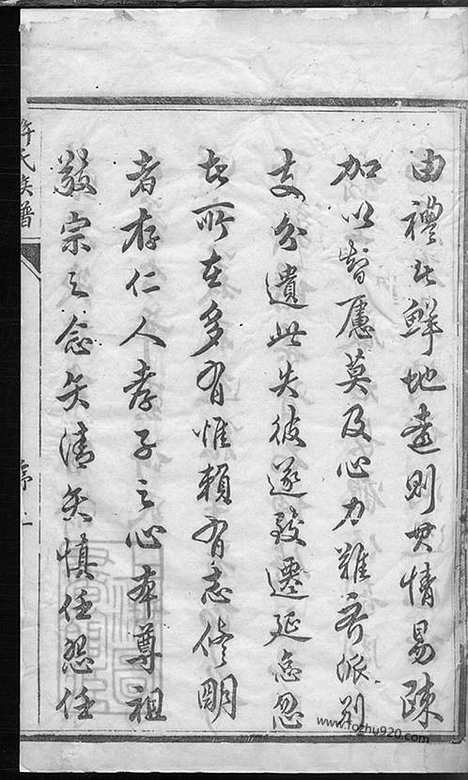 由禮者鮮地遠則其情易疎
加以智慮莫及心力難齊派別
支分遺此失彼遂致遷延怠忽
者所在多有惟賴有志修明
者存仁人孝子之心本尊祖
敬宗之念矢清矢慎任怨任
許氏族譜
序
www.fozhu920.com